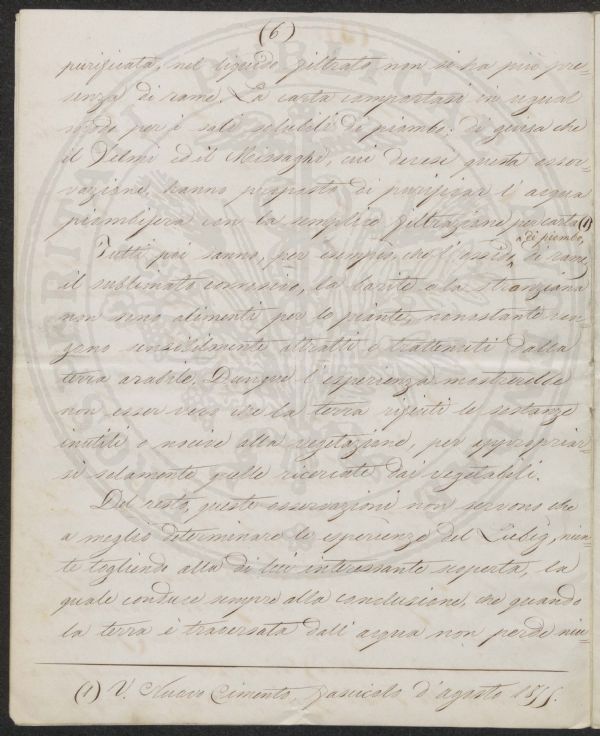 (6)
purificata, nel liquido filtrato non si ha più pre-
senza di rame. La carta comportasi in ugual
modo per i sali solubili di piombo: di guisa che
il Selmi ed il Missaghi, cui devesi questa osser-
vazione, hanno proposto di purificar l'acqua
piombifera con la semplice filtrazione per carta (1)
Tutti poi sanno, per esempio, che l'ossido di piombo, di rame,
il sublimato corrosivo, la barite e la stronziana
non sono alimenti per le piante, nonostante ven-
gono sensibilmente attratti e trattenuti dalla
terra arabile. Dunque l'esperienza mostrerebbe
non esser vero che la terra rigetti le sostanze
inutili o nocive alla vegetazione, per appropriar-
si solamente quelle ricercate dai vegetabili.
Del resto, queste osservazioni non servono che
a meglio determinare le esperienze del Liebig, nien-
te togliendo alla di lui interessante scoperta, la
quale conduce sempre alla conclusione, che quando
la terra è traversata dall'acqua non perde niu-
(1) V. Nuovo Cimento, fascicolo d'agosto